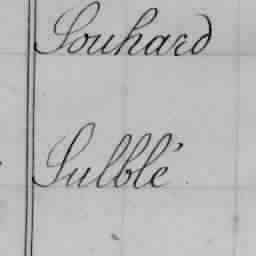 Souhard
Sulblé